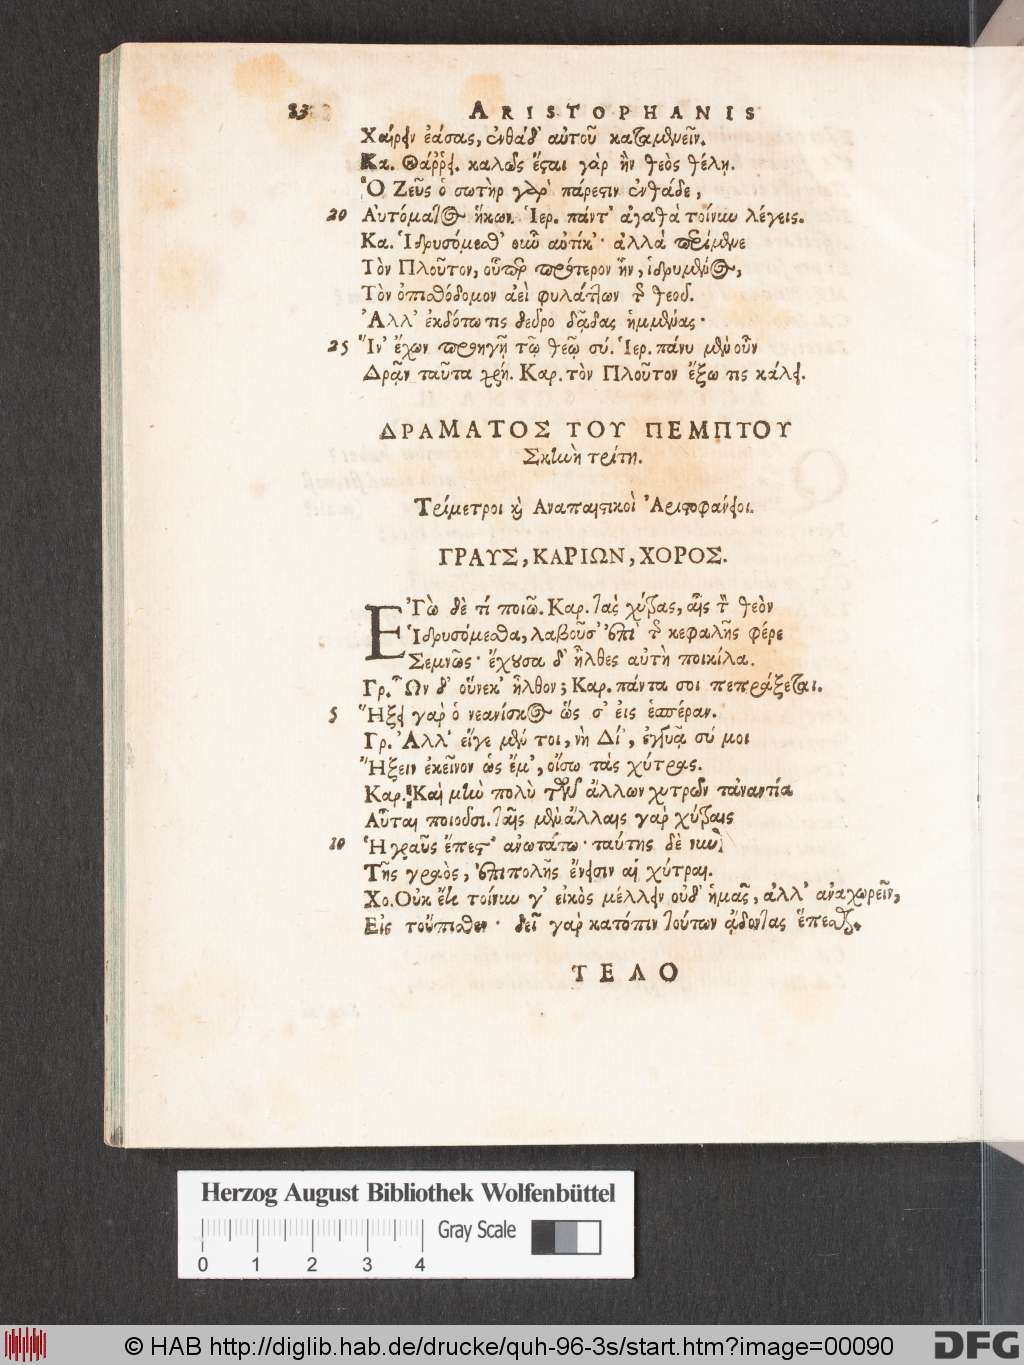 ARISTOPHANIS
Χαίρειν ἐάσας, ἐνθάδ' αὐτοῦ καταμένειν.
Κα. Θάῤῥει. καλῶς ἔσται γὰρ ἢν θεὸς θέλῃ.
Ὁ Ζεὺς ὁ σωτὴρ γὰρ πάρεστιν ἐνθάδε,
20 Αὐτόματος ἥκων. Ἱερ. πάντ' ἀγαθὰ τοίνυν λέγεις.
Κα. Ἱδρυσόμεσθ' οὖν αὐτίκ'· ἀλλὰ περίμενε
Τὸν Πλοῦτον, οὗπερ πρότερον ἦν, ἱδρυμένος,
Τὸν ὀπισθόδομον ἀεὶ φυλάττων τῆς θεοῦ.
Ἀλλ' ἐκδότω τις δεῦρο δᾷδας ἡμμένας·
25 Ἵν' ἔχων προηγῇ τῷ θεῷ σύ. Ἱερ. πάνυ μὲν οὖν
Δρᾷν ταῦτα χρή. Καρ. τὸν Πλοῦτον ἔξω τις κάλει.
ΔΡΑΜΑΤΟΣ ΤΟΥ ΠΕΜΠΤΟΥ
Σκηνὴ τρίτη.
Τρίμετροι καὶ Αναπαιστικοὶ Ἀριστοφάνειοι.
ΓΡΑΥΣ, ΚΑΡΙΩΝ, ΧΟΡΟΣ.
ἘΓὼ δὲ τί ποιῶ. Καρ. τὰς χύτρας, αἷς τὸν θεὸν
Ἱδρυσόμεσθα, λαβοῦσ' ἐπὶ τῆς κεφαλῆς φέρε
Σεμνῶς· ἔχουσα δ' ἦλθες αὐτὴ ποικίλα.
Γρ. Ὧν δ' οὕνεκ' ἦλθον; Καρ. πάντα σοι πεπράξεται.
5 Ἥξει γὰρ ὁ νεανίσκος ὥς σ' εἰς ἑσπέραν.
Γρ. Ἀλλ' εἴγε μέν τοι, νὴ Δί', ἐγγυᾷ σύ μοι
Ἥξειν ἐκεῖνον ὡς ἔμ', οἴσω τὰς χύτρας.
Καρ. Καὶ μὴν πολὺ τῶν ἄλλων χυτρῶν τἀναντία
Αὗται ποιοῦσι. ταῖς μὲν ἄλλαις γὰρ χύτραις
10 Ἡ γραῦς ἔπεστ' ἀνωτάτω· ταύτης δὲ νῦν
Τῆς γραὸς, ἐπιπολῆς ἔνεισιν αἱ χύτραι.
Χο. Οὐκ ἔτι τοίνυν γ' εἰκὸς μέλλειν οὐδ' ἡμᾶς, ἀλλ' ἀναχωρεῖν,
Εἰς τοὔπισθεν· δεῖ γὰρ κατόπιν τούτων ᾄδοντας ἕπεσθαι.
ΤΕΛΟ
Herzog August Bibliothek Wolfenbüttel
Gray Scale
0 1 2 3 4
© HAB http://diglib.hab.de/drucke/quh-96-3s/start.htm?image=00090
DFG